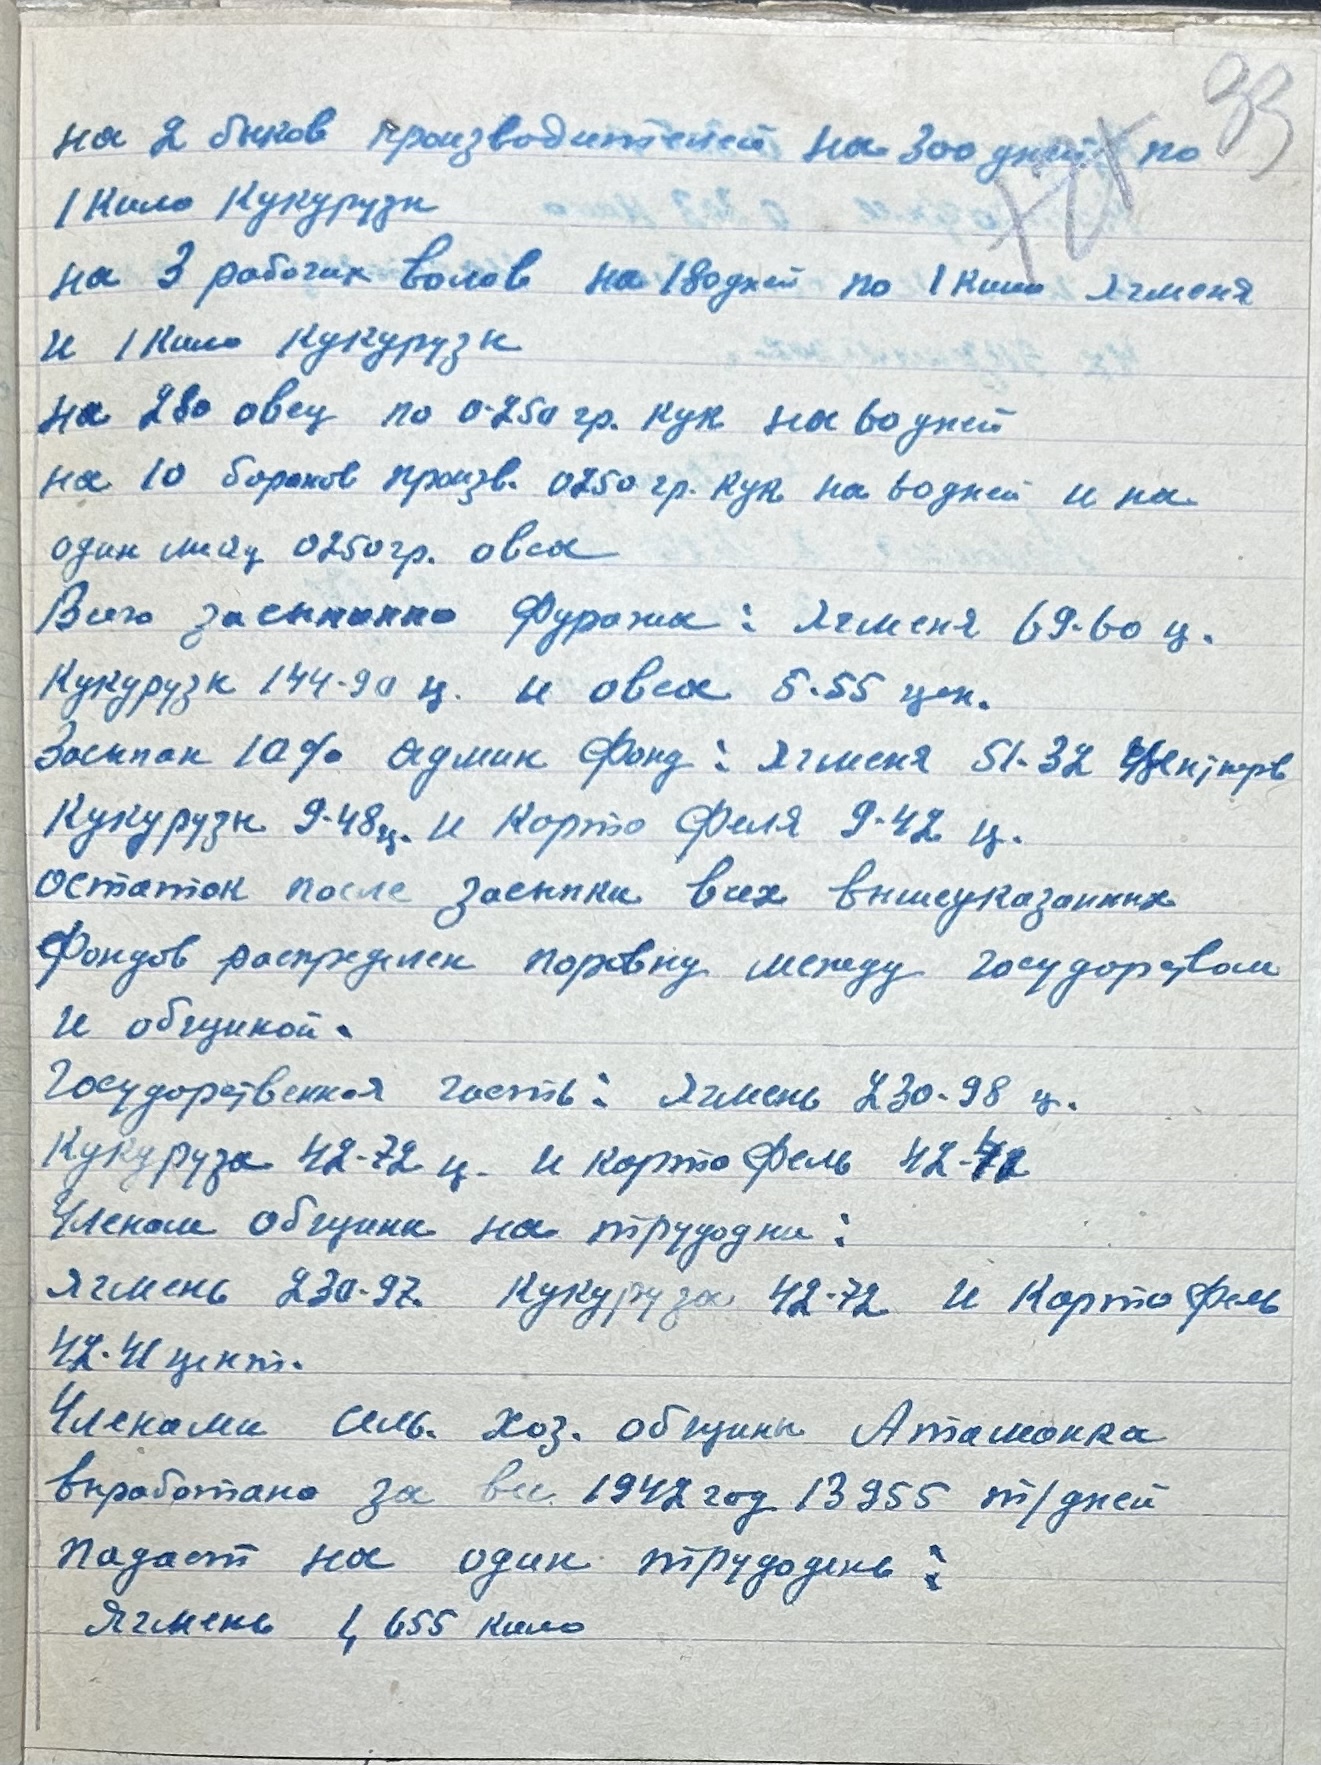 33
на 2 быков производителей на 300 дней по
1 кило кукурузы
на 3 рабочих волов на 180 дней по 1 кило ячменя
и 1 кило кукурузы
на 280 овец по 0-250 гр. кук на 60 дней
на 10 боранов произв. 0250 гр. кук на 60 дней и на
один мсяц 0250 гр. овса
Всего засыпанно фуража: ячменя 69-60 ц.
Кукурузы 144-90 ц. и овса 5-55 цен.
Засыпан 10% админ фонд: ячменя 51-32
Кукурузы 9-48 ц. и картофеля 9-42 ц.
остаток после засыпки всех вышеуказанных
фондов распределен поровну между государством
и общиной.
Государственная часть: ячмень 230-98 ц.
Кукуруза 42-72 ц. и картофель 42-42
Членам общины на трудодни:
ячмень 230-97. Кукуруза 42-72 и Картофель
42-41 цент.
Членами сель. хоз. общины Атаманка
выработано за вес. 1942 год 13955 т/дней
падает на один трудодень:
Ячмень 1,655 кило